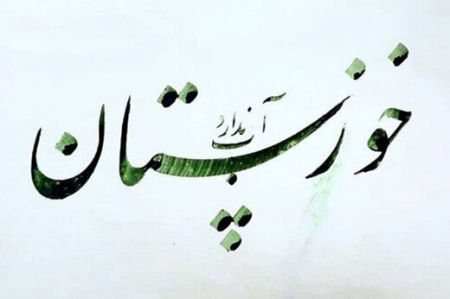 خوزستان
آب ندارد